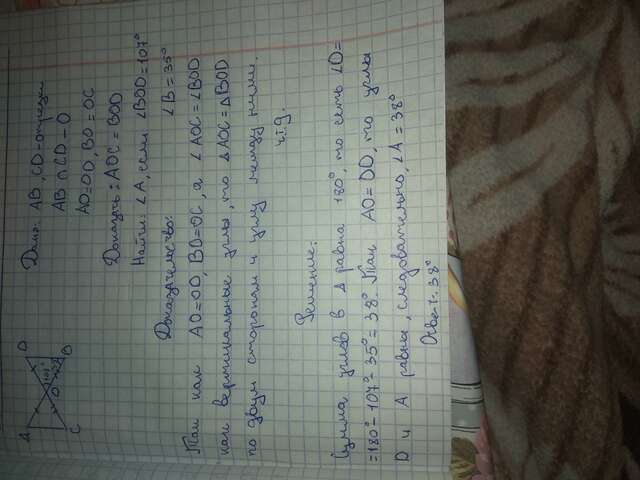 A D
O 107° 35°
C B
Дано: AB, CD - отрезки
AB ∩ CD - O
AO=OD, BO=OC
Доказать: AOC = BOD
Найти: ∠A, если ∠BOD=107°
∠B=35°
Доказательство:
Так как AO=OD, BO=OC, а ∠AOC=∠BOD
как вертикальные углы, то ΔAOC=ΔBOD
по двум сторонам и углу между ними.
ч.т.д.
Решение:
Сумма углов в Δ равна 180°, то есть ∠D=
=180°-107°-35°=38°. Так AO=OD, то углы
D и A равны, следовательно, ∠A=38°
Ответ: 38°